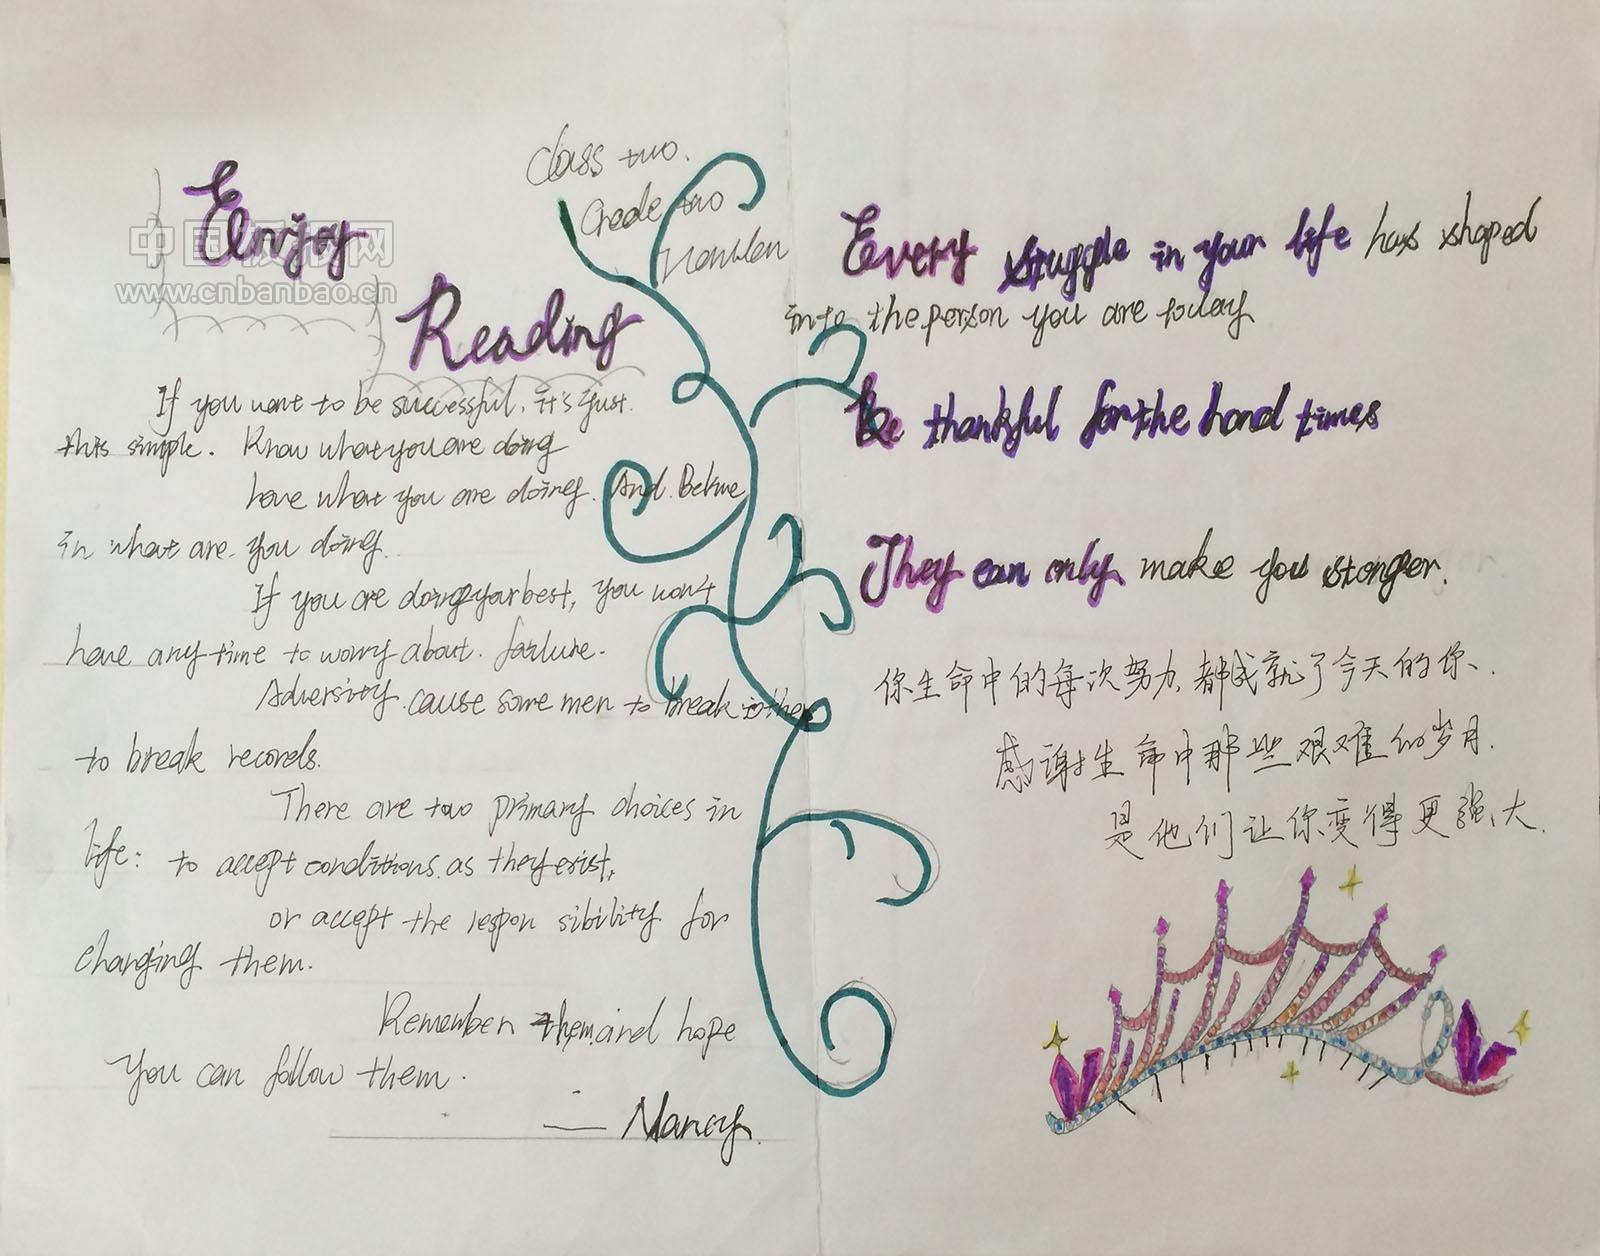 Enjoy
Reading
Class two.
Grade two
中国板报网
www.cnbanbao.cn
If you want to be successful, it's just
this simple. Know what you are doing
Love what you are doing. And. Believe
in what are you doing.
If you are doing your best, you won't
have any time to worry about. failure.
Adversity cause some men to break others
to break records.
There are two primary choices in
life: to accept conditions as they exist,
or accept the respon sibility for
changing them.
Remember them and hope
You can follow them.
— Nancy.
Every stuggle in your life has shaped
into the person you are today
Be thankful for the hard times
They can only make you stonger.
你生命中的每次努力,都成就了今天的你、
感谢生命中那些艰难的岁月.
是他们让你变得更强大.